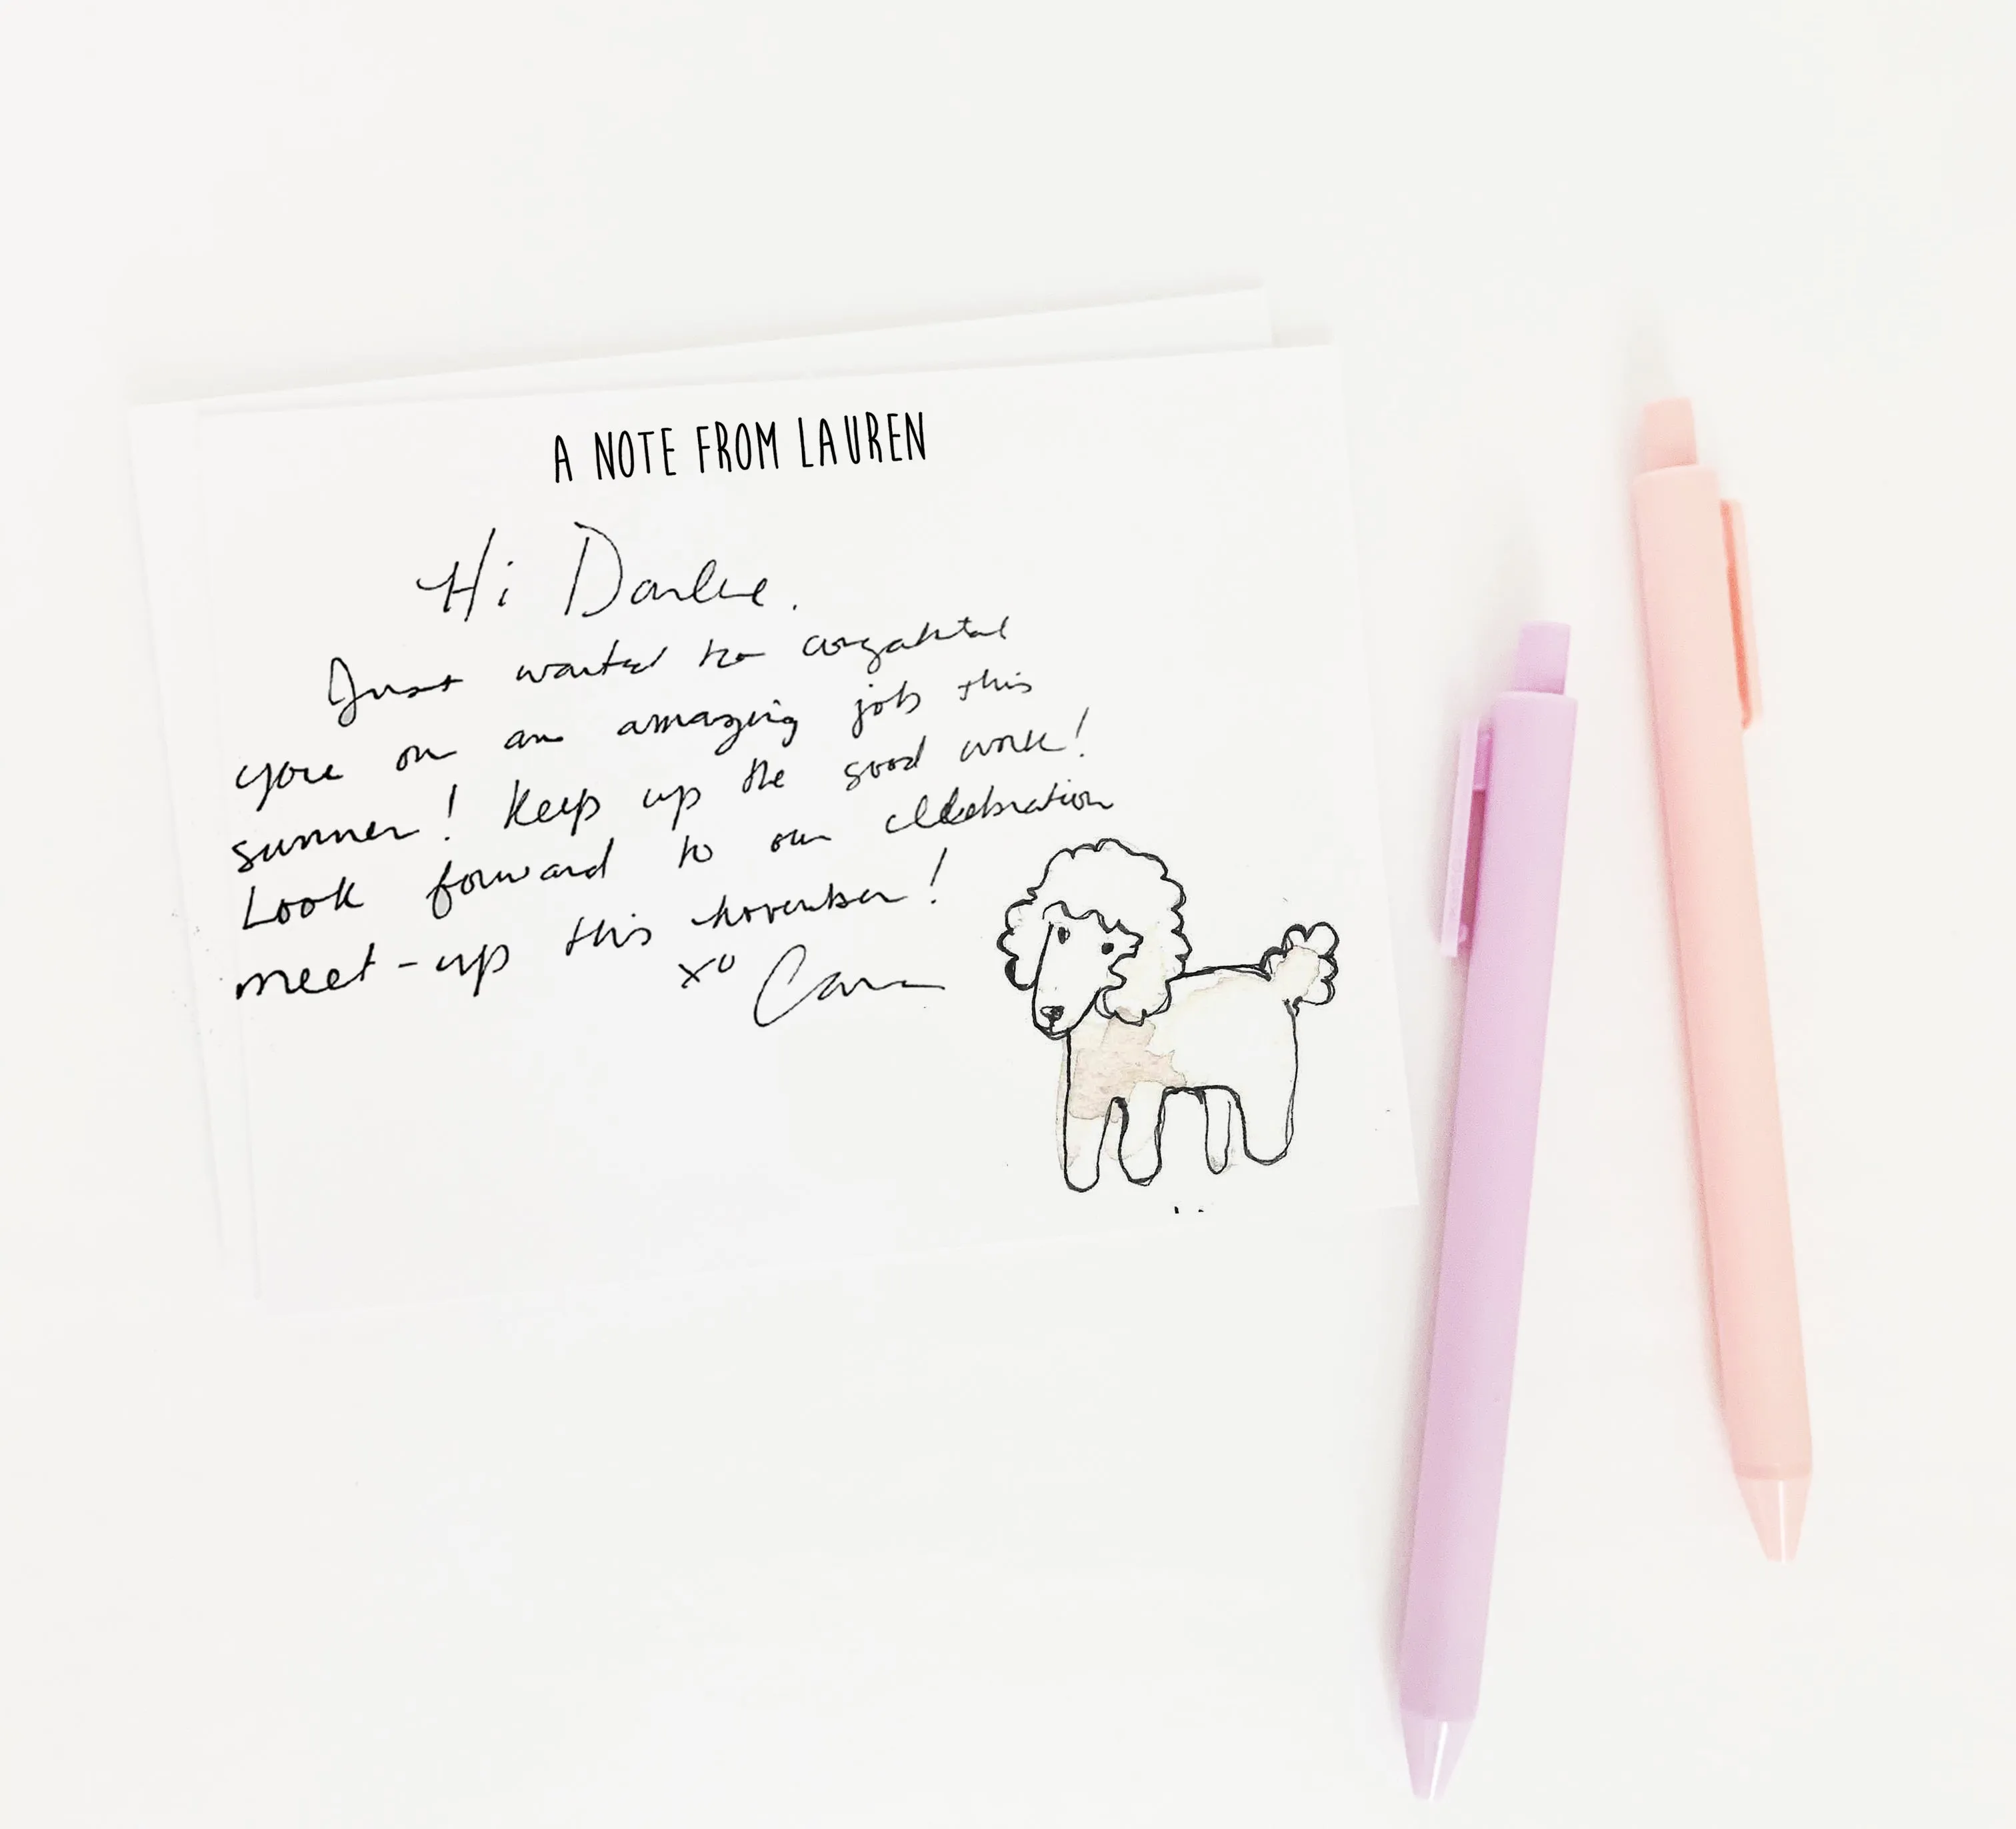 A NOTE FROM LAUREN
Hi Darlene.
Just wanted to
you on an amazing job this
summer! Keep up the good work!
Look forward to our celebration
meet-up this november!
xo Cara